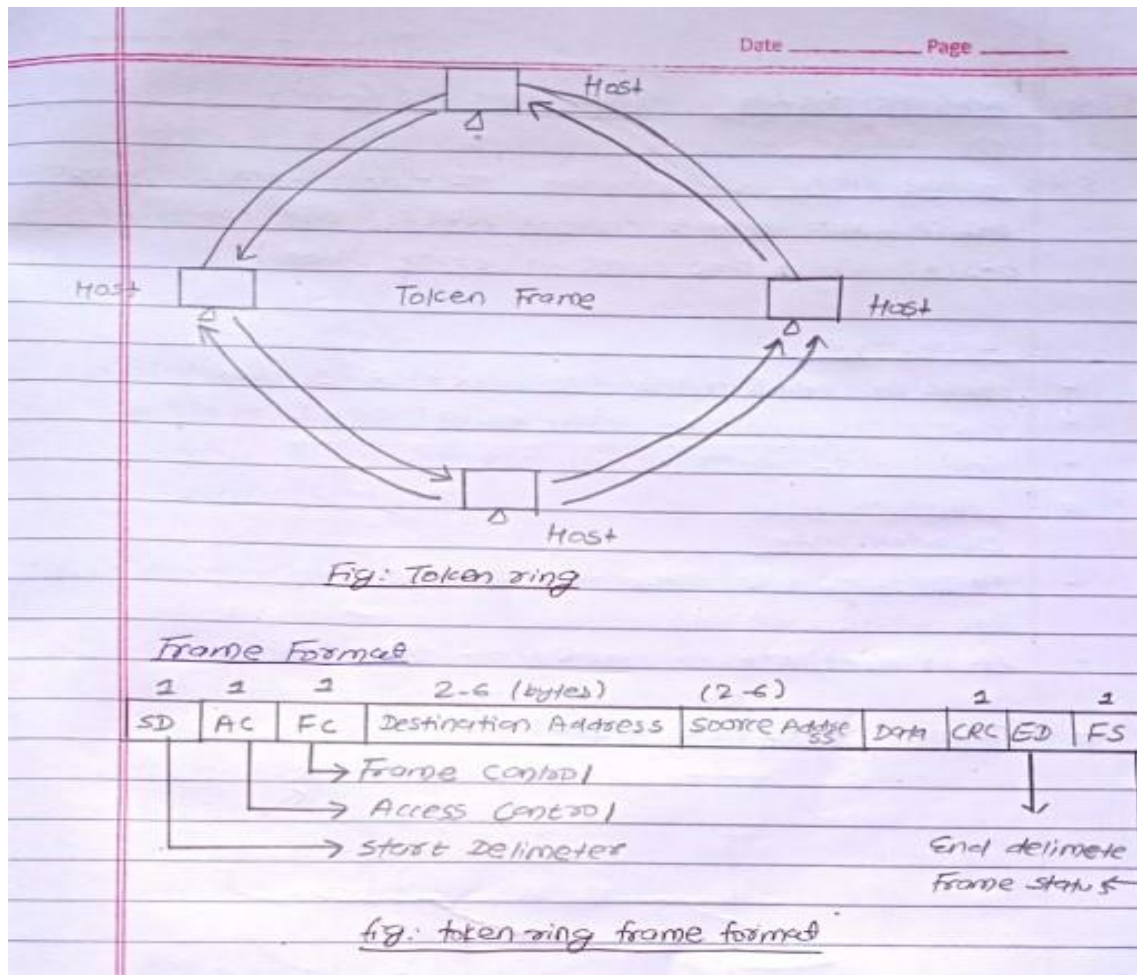 Date Page
Host
Host Token Frame Host
Host
Fig: Token ring
Frame Format
1 1 1 2-6 (bytes) (2-6) 1 1
SD AC FC Destination Address Source Addre
ss Data CRC ED FS
Frame Control
Access Control
Start Delimeter End delimete
Frame status
fig: token ring frame format